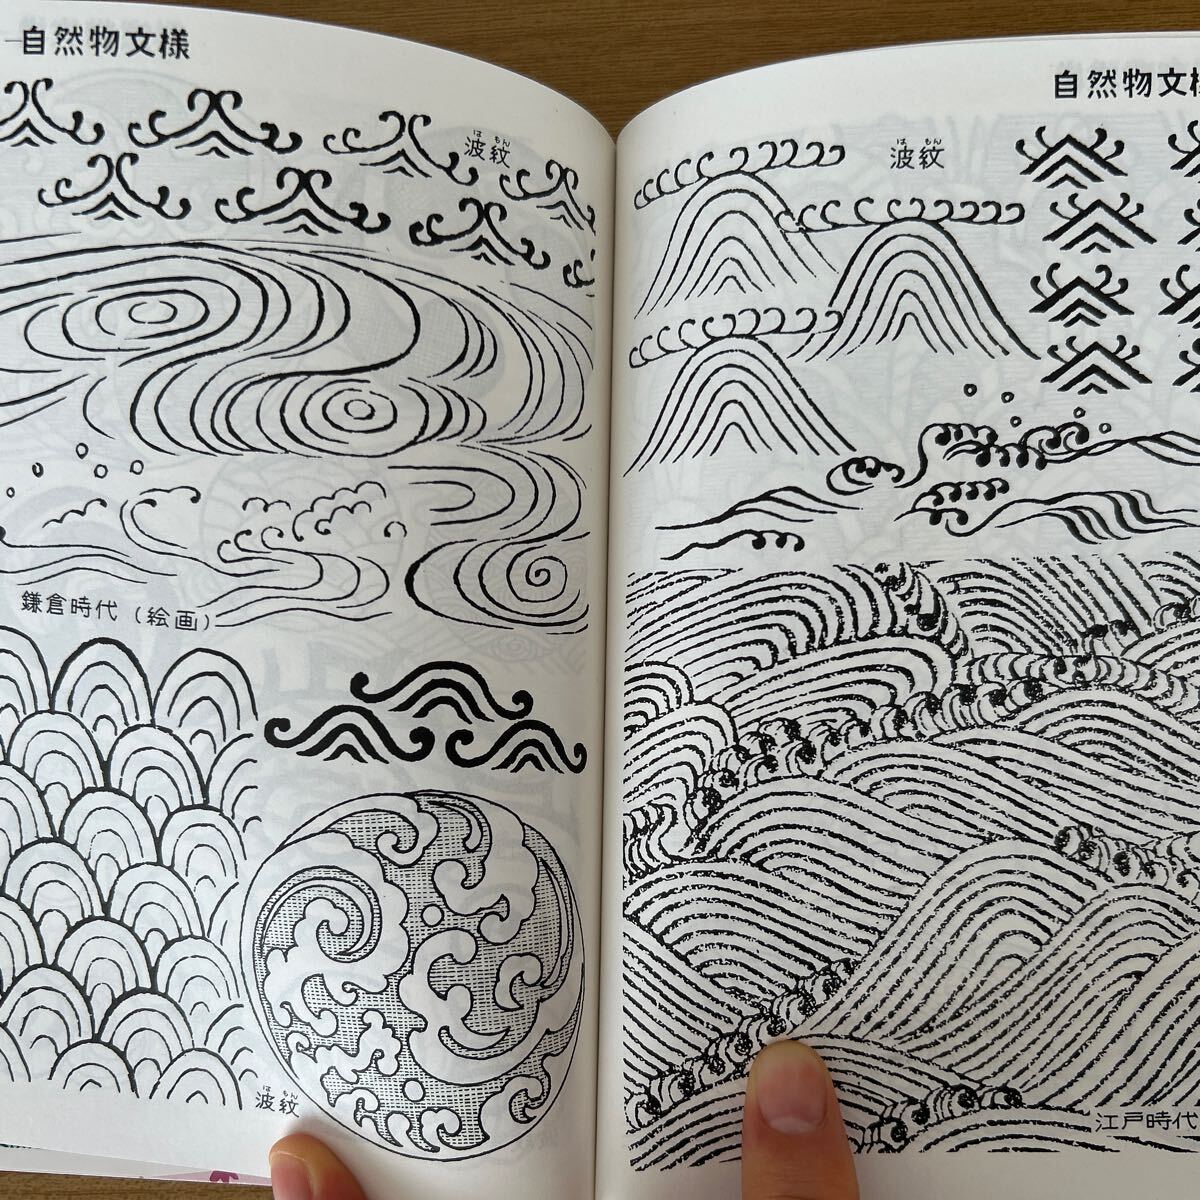 自然物文様
波紋
はもん
鎌倉時代（絵画）
波紋
はもん
自然物文様
波紋
はもん
江戸時代